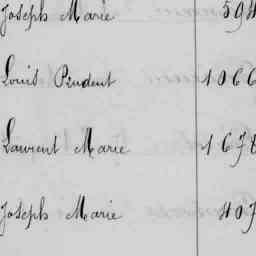 Joseph Marie 594
Louis Prudent 1066
Laurent Marie 1678
Joseph Marie 407